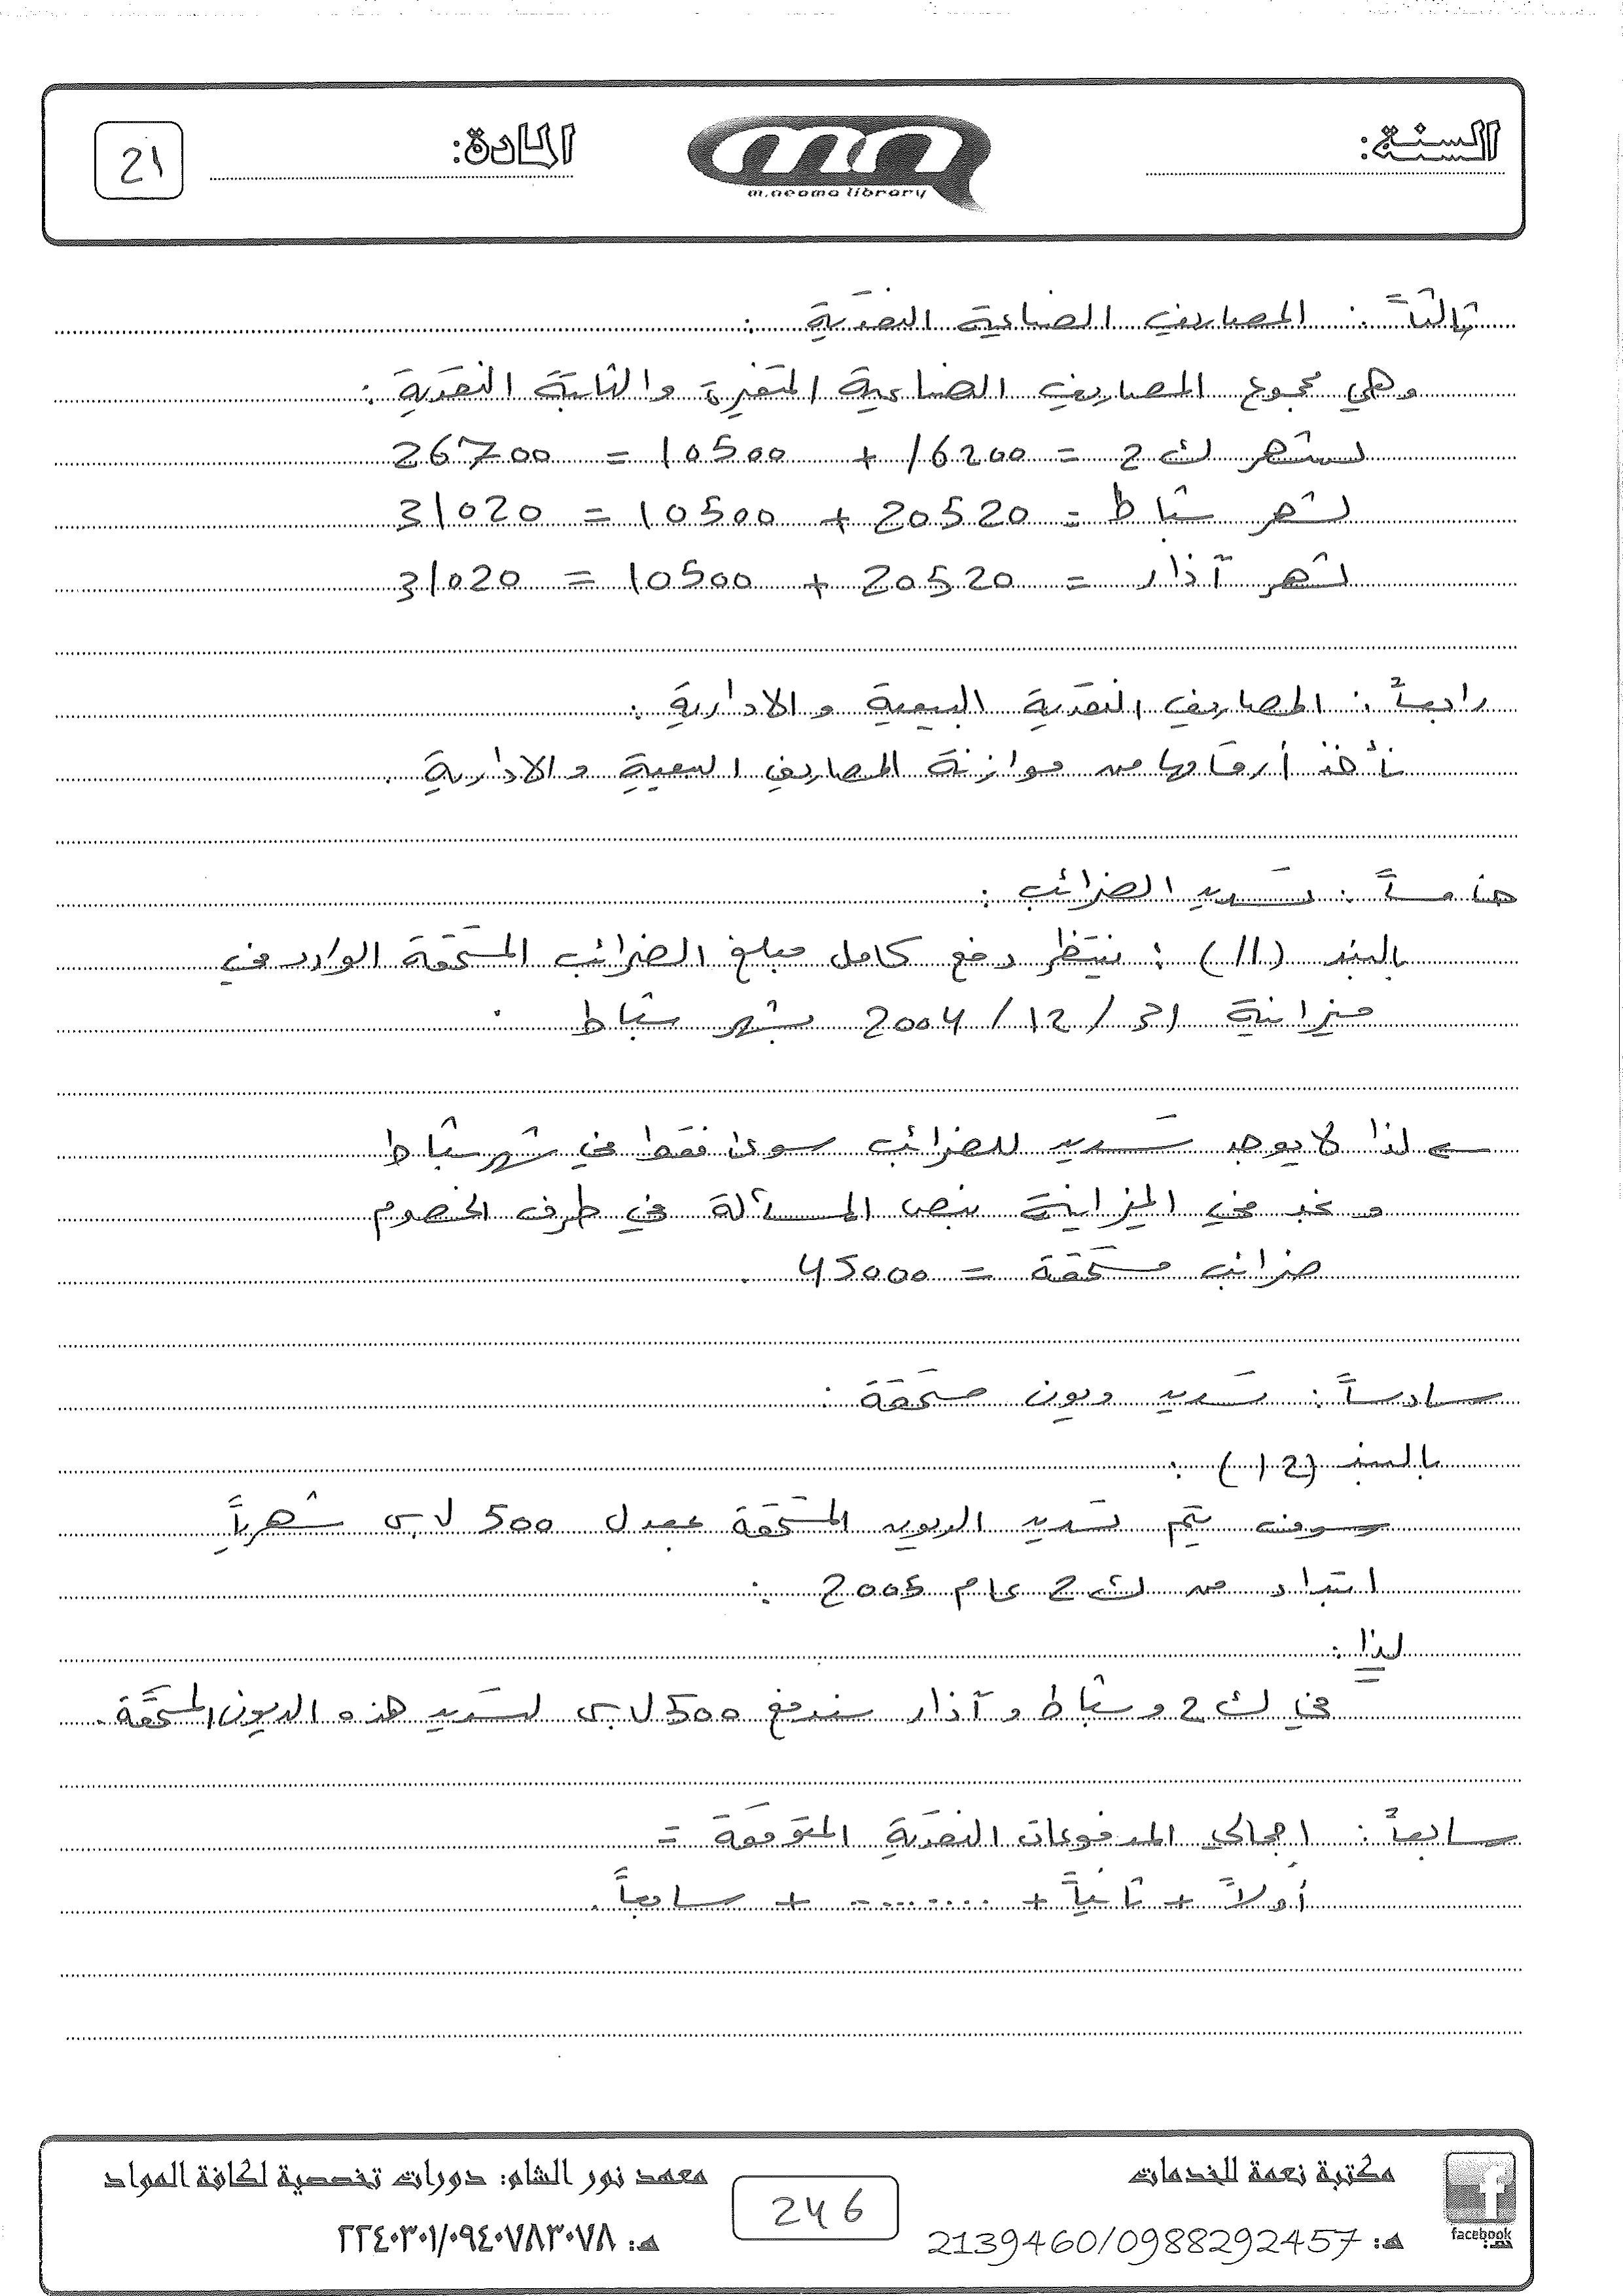 السنة:
m.neoma library
المادة:
21
ثالثاً : المصاريف الصناعية النقدية :
وهي مجموع المصاريف الصناعية المتغيرة والثابتة النقدية :
لشهر ك 2 = 16200 + 10500 = 26700
لشهر شباط = 20520 + 10500 = 31020
لشهر آذار = 20520 + 10500 = 31020
رابعاً : المصاريف النقدية البيعية والادارية :
نأخذ أرقامها من موازنة المصاريف البيعية والادارية .
خامساً : تسديد الضرائب :
بالبند (11) : ننتظر دفع كامل مبلغ الضرائب المستحقة الوارد في
ميزانية 31 / 12 / 2004 بشهر شباط .
لذا لا يوجد تسديد للضرائب سوى فقط في شهر شباط
و نجد في الميزانية بنص المسألة في طرف الخصوم
ضرائب مستحقة = 45000 .
سادساً : تسديد ديون مستحقة :
بالبند (12) :
سوف يتم تسديد الديون المستحقة بمعدل 500 ل.س شهرياً
ابتداء من ك 2 عام 2005 :
لذا :
في ك 2 و شباط و آذار سندفع 500 ل.س لتسديد هذه الديون المستحقة .
سابعاً : اجمالي المدفوعات النقدية المتوقعة =
أولاً + ثانياً + ........ + سابعاً .
مكتبة نعمة للخدمات
هـ: 2139460/0988292457
facebook
246
معهد نور الشام: دورات تخصصية لكافة المواد
هـ: ٢٢٤٠٣٠١/٠٩٤٠٧٨٣٠٧٨